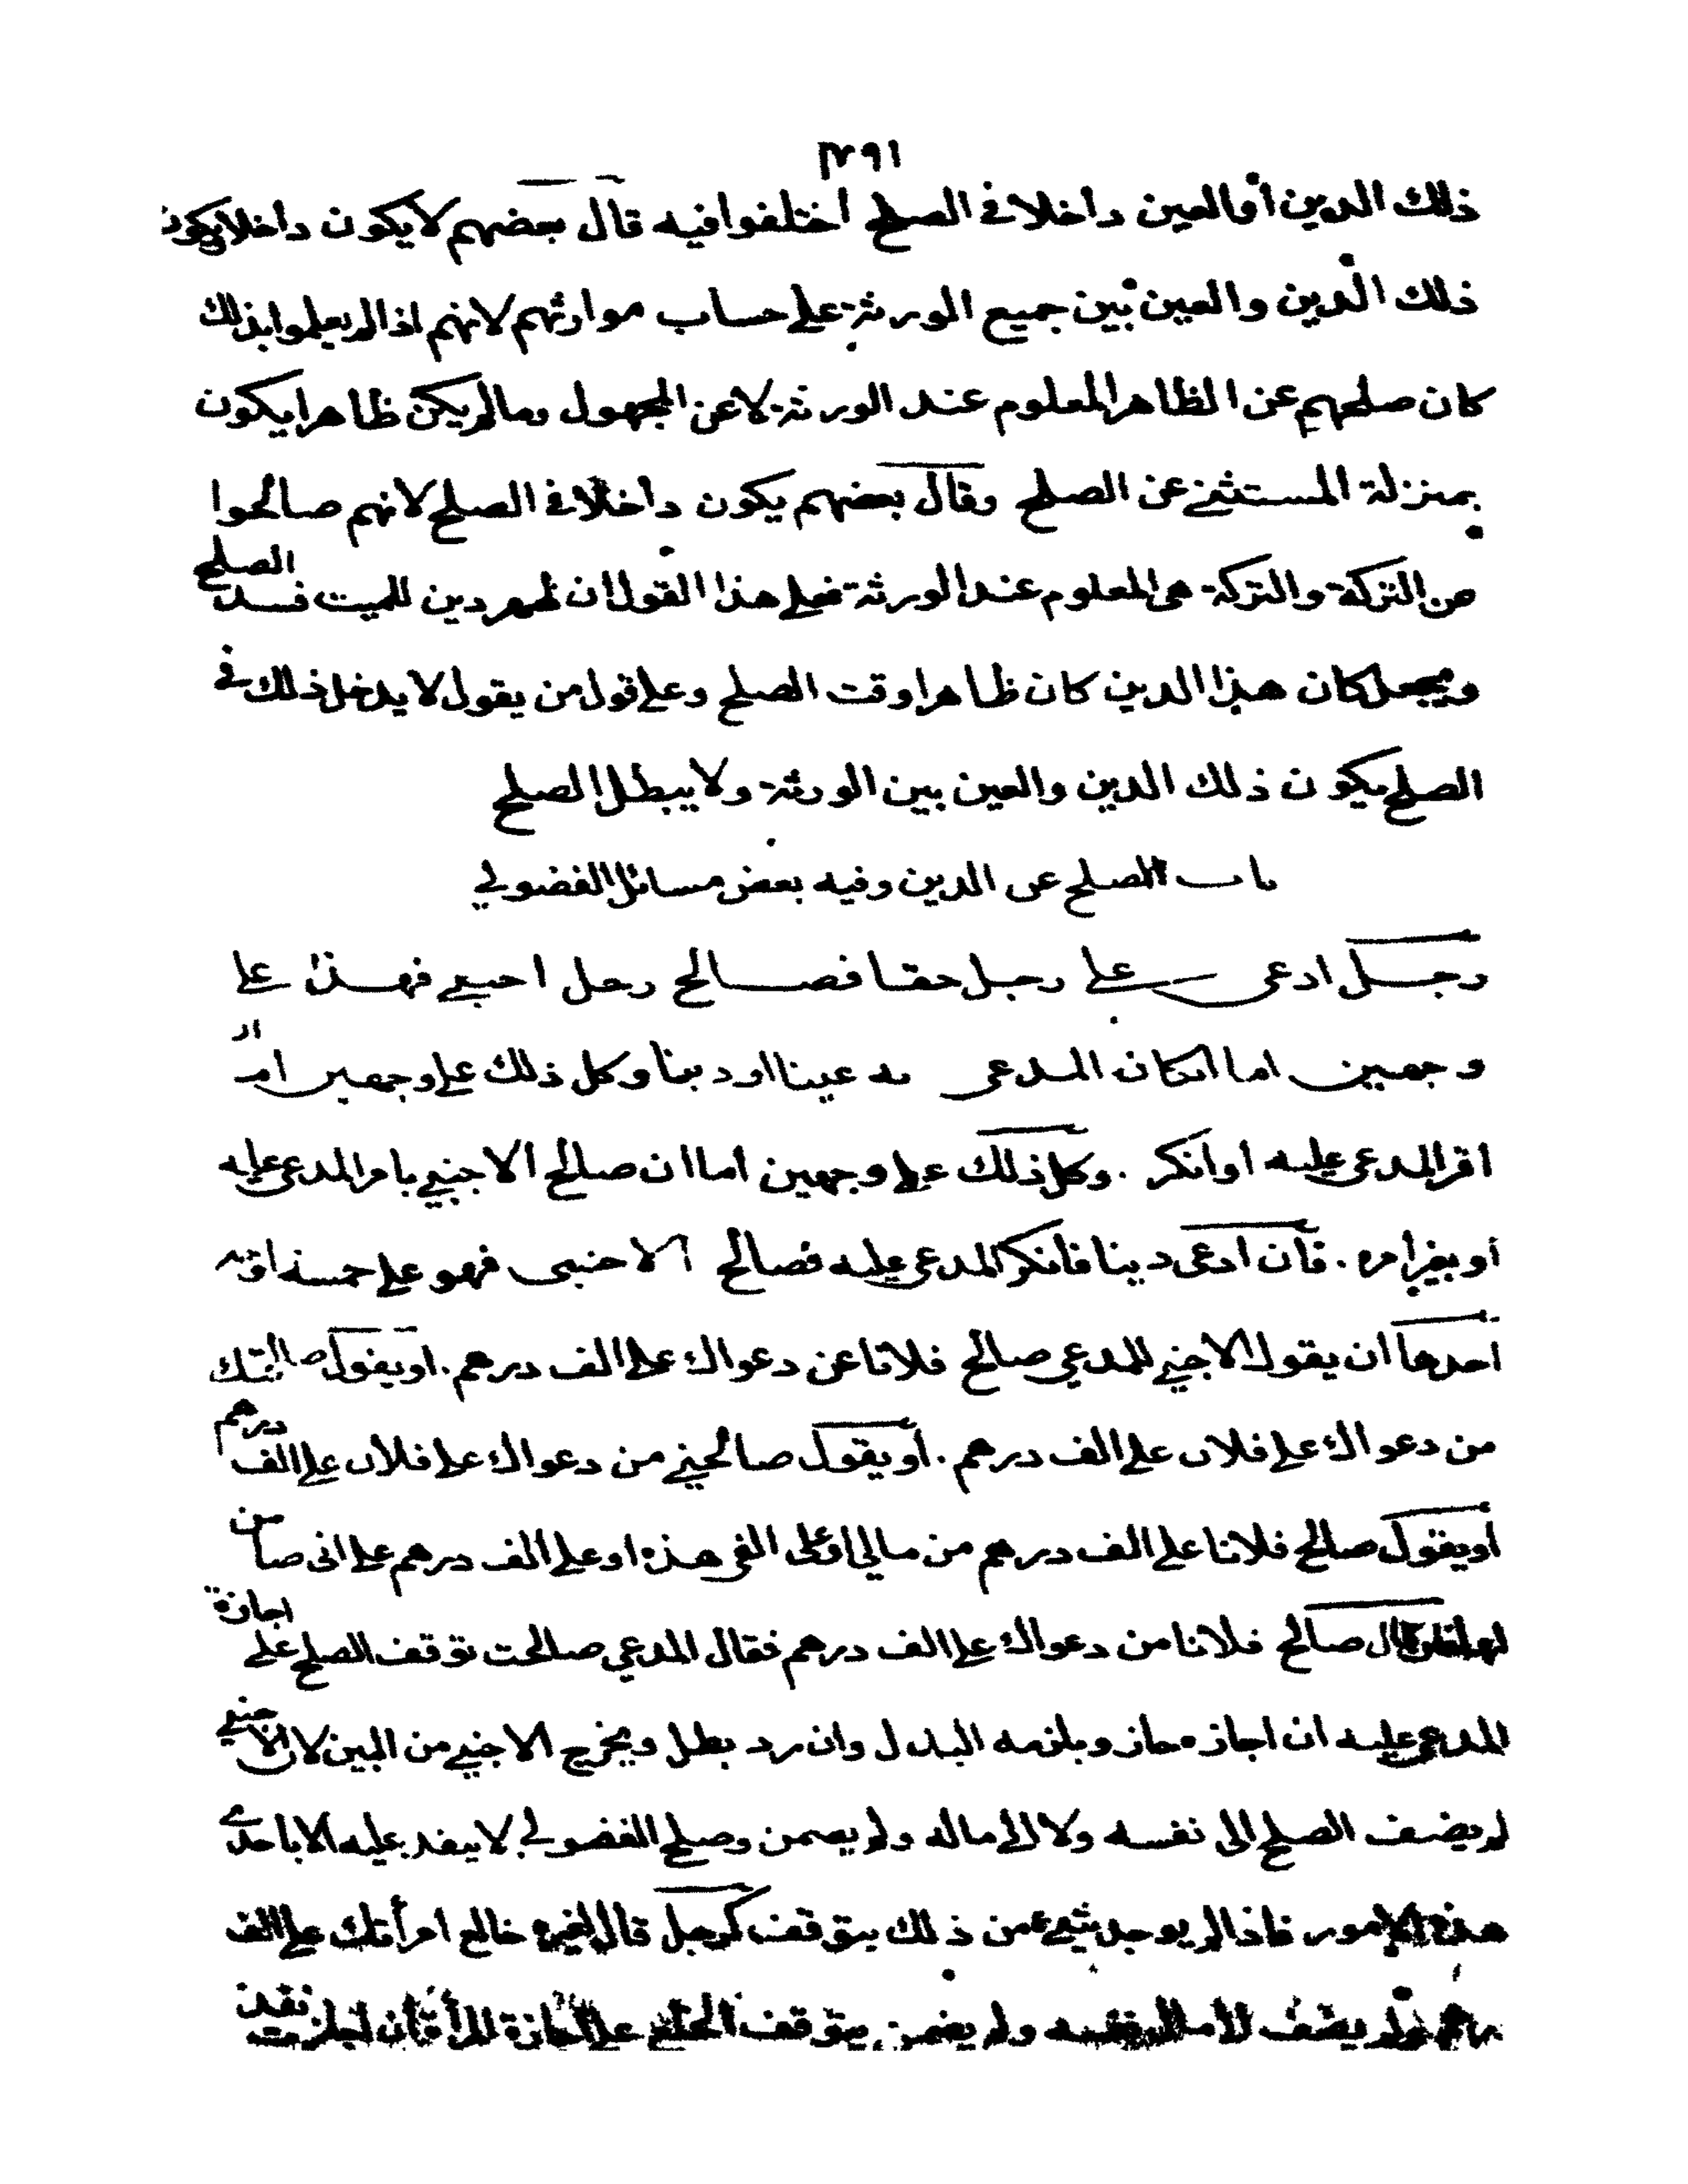 ١٢٩١
ذلك الدين أو العين داخلا في الصلح اختلفوا فيه قال بعضهم لا يكون داخلا يكون
ذلك الدين والعين بين جميع الورثة على حساب مواريثهم لانهم اذا لم يعلموا بذلك
كان صلحهم عن الظاهر المعلوم عند الورثة لا عن المجهول وما لم يكن ظاهرا يكون
بمنزلة المستثنى عن الصلح وقال بعضهم يكون داخلا في الصلح لانهم صالحوا
من التركة والتركة هي المعلوم عند الورثة فعلى هذا القول ان ظهر دين للميت فسد الصلح
ويجعل كان هذا الدين كان ظاهرا وقت الصلح وعلى قول من يقول لا يدخل ذلك في
الصلح يكون ذلك الدين والعين بين الورثة ولا يبطل الصلح
باب الصلح عن الدين وفيه بعض مسائل الفضولي
رجل ادعى على رجل حقا فصالح رجل اجنبي فهذا على
وجهين اما ان كان المدعى به عينا او دينا وكل ذلك على وجهين اما ان
اقر المدعى عليه او انكر . وكل ذلك على وجهين اما ان صالح الاجنبي بامر المدعى عليه
أو بغير امره . فان ادعى دينا فانكر المدعى عليه فصالح الاجنبى فهو على خمسة اوجه
احدها ان يقول الاجنبي للمدعي صالح فلانا عن دعواك على الف درهم . او يقول صالحتك
من دعواك على فلان على الف درهم . او يقول صالحني من دعواك على فلان على الف درهم
او يقول صالح فلانا على الف درهم من مالي او على الفى هذه او على الف درهم على انى ضامن
لها فان قال صالح فلانا من دعواك على الف درهم فقال المدعي صالحت توقف الصلح على اجازة
المدعى عليه ان اجازه جاز ويلزمه البدل وان رد بطل ويخرج الاجنبي من البين لان الاجنبي
لم يضف الصلح الى نفسه ولا الى ماله ولم يضمن وصلح الفضولي لا ينفد عليه الا باحدى
هذه الامور فاذا لم يوجد شيء من ذلك يتوقف كرجل قال لغيره خالع امرأتك على الف
درهم ولم يضف الى نفسه ولم يضمن يتوقف الخلع على اجازة المرأة فان اجازت نفذ